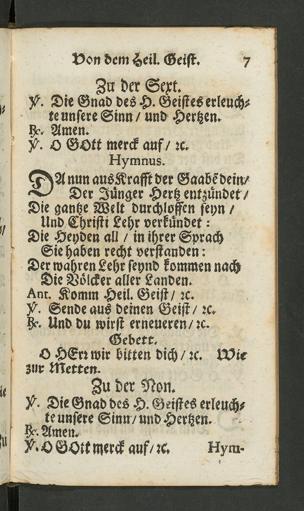 Von dem Heil. Geist. 7
Zu der Sext.
℣. Die Gnad des H. Geistes erleuch-
te unsere Sinn / und Hertzen.
℟. Amen.
℣. O GOtt merck auf / ꝛc.
Hymnus.
DA nun aus Krafft der Gaabē dein /
Der Jünger Hertz entzündet /
Die gantze Welt durchloffen seyn /
Und Christi Lehr verkündet :
Die Heyden all / in ihrer Sprach
Sie haben recht verstanden :
Der wahren Lehr seynd kommen nach
Die Völcker aller Landen.
Ant. Komm Heil. Geist / ꝛc.
℣. Sende aus deinen Geist / ꝛc.
℟. Und du wirst erneueren / ꝛc.
Gebett.
O HErr wir bitten dich / ꝛc. Wie
zur Metten.
Zu der Non.
℣. Die Gnad des H. Geistes erleuch-
te unsere Sinn / und Hertzen.
℟. Amen.
℣. O GOtt merck auf / ꝛc. Hym-